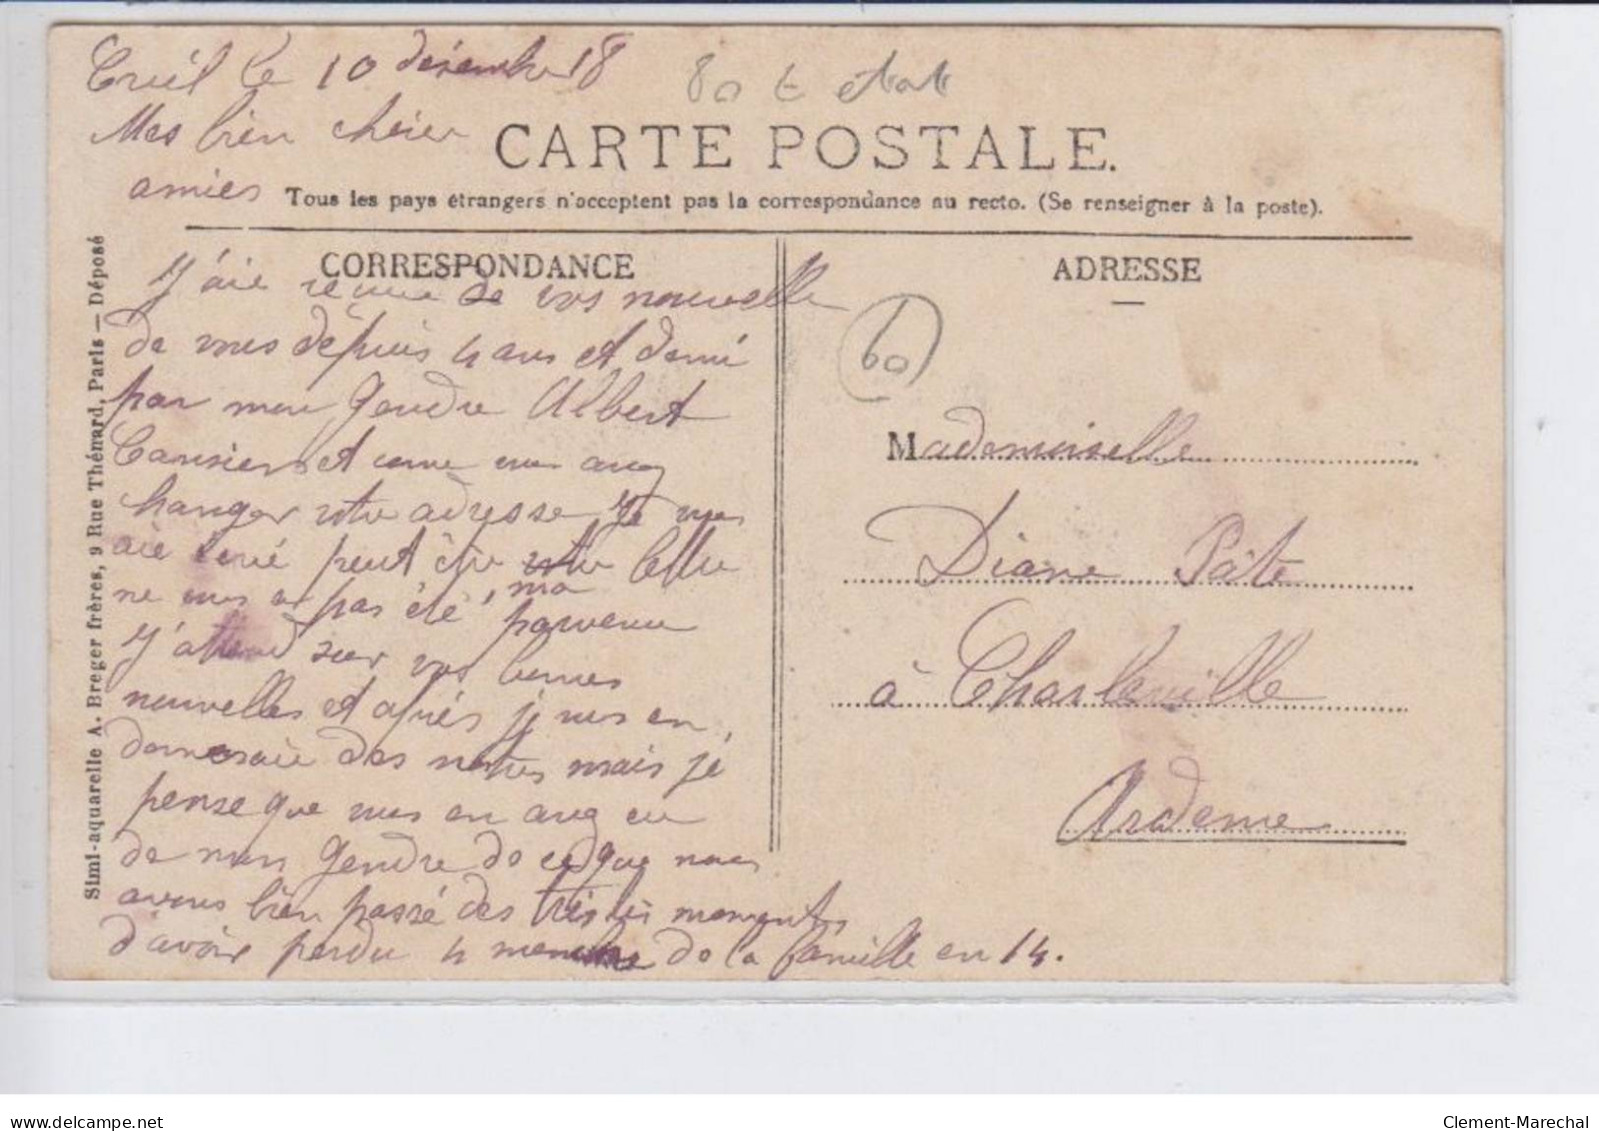 Creil le 10 décembre 18
Mes bien chère
amies
80 € état
CARTE POSTALE.
Tous les pays étrangers n'acceptent pas la correspondance au recto. (Se renseigner à la poste).
CORRESPONDANCE
J'aie de vos nouvelle
de vous dépuis 4 ans et demi
par mon Gendre Albert
et avez
hanger votre adresse je vous
aie peut être votre lettre
ne vous a pas été, ma parvenu
J'attend sur vos bonnes
nouvelles et après je vous en
donneraie des notres mais je
pense que vous en avez eu
de mon Gendre de ce que nous
avons bien passé des tristes moments
d'avoir perdu 4 membre de la famille en 14.
Simi-aquarelle A. Breger frères, 9 Rue Thénard, Paris — Déposé
ADRESSE
60
Mademoiselle
Diane Pâte
à Charleville
Ardenne
Clement-Marechal